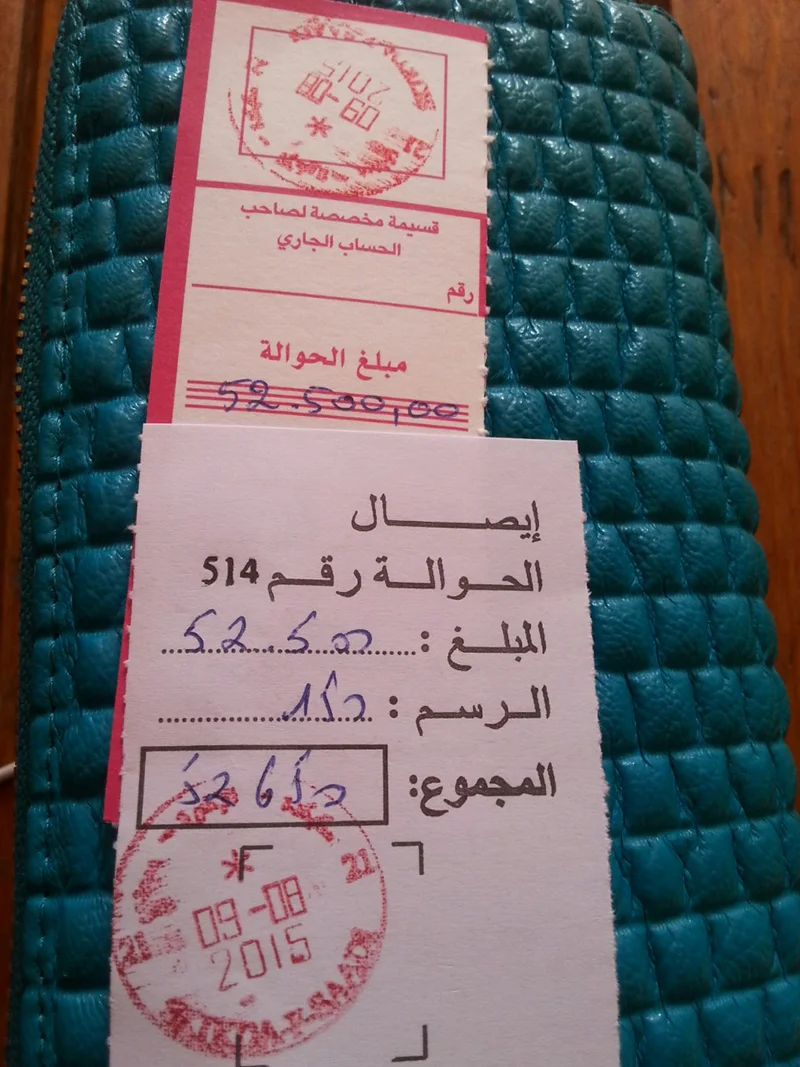 2015
09-08
قسيمة مخصصة لصاحب
الحساب الجاري
رقم
مبلغ الحوالة
52.500,00
إيصال
الحوالة رقم 514
المبلغ : 52.500
الرسم : 150
المجموع: 52650
21
09-08
21
2015